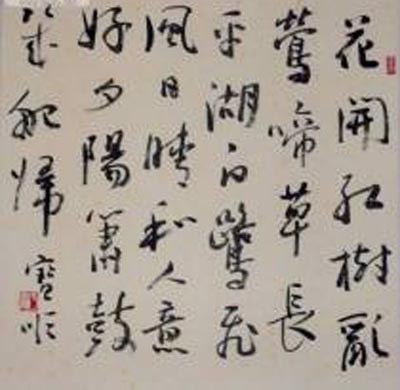 花開紅樹亂
鶯啼草長
平湖白鷺飛
風日晴和人意
好夕陽簫鼓
幾船歸
寶順